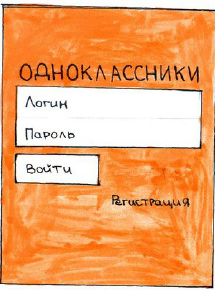 ОДНОКЛАССНИКИ
Логин
Пароль
Войти
Регистрация